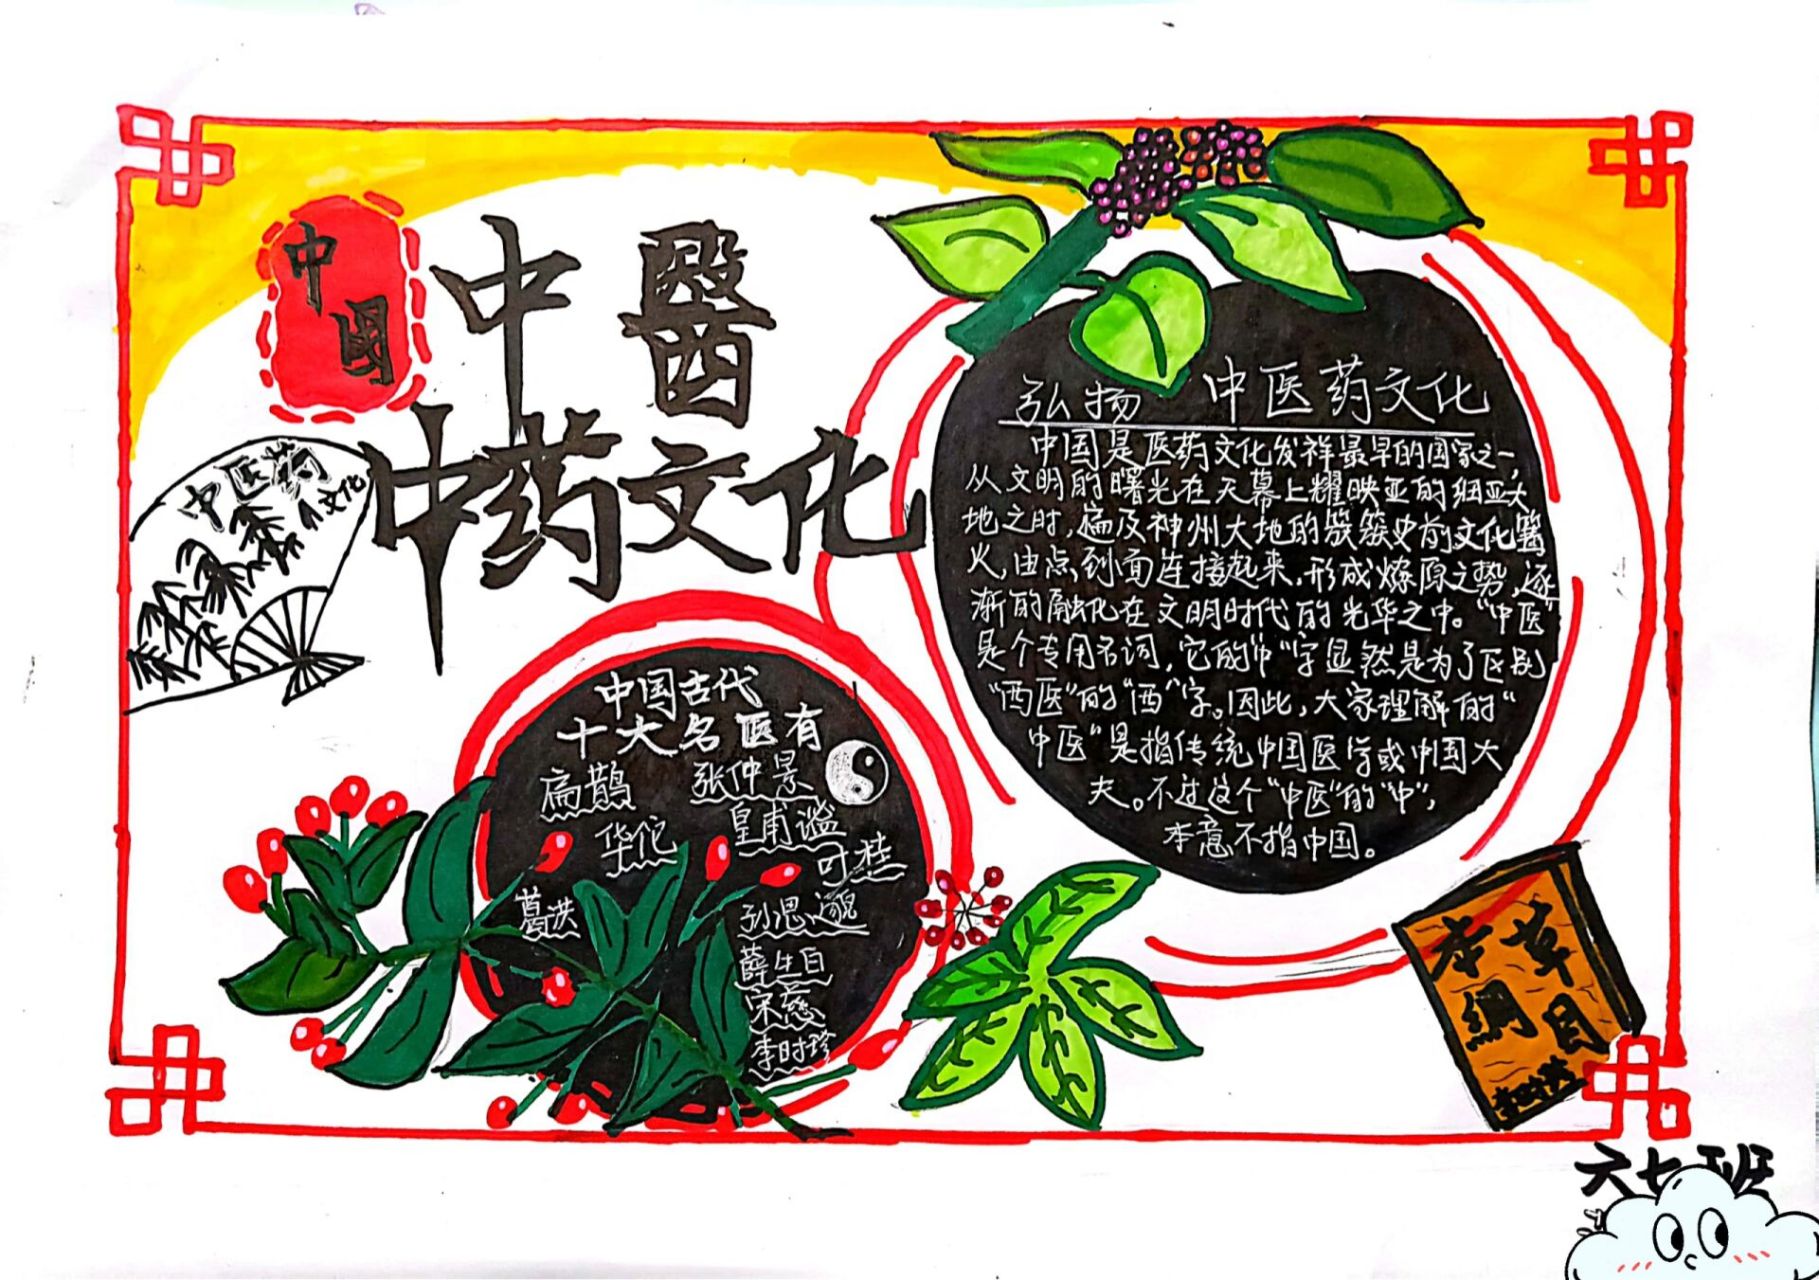 中
国
中醫
中药文化
中医药
文化
弘扬 中医药文化
中国是医药文化发祥最早的国家之一,
从文明的曙光在天幕上耀映亚的细亚大
地之时,遍及神州大地的簇簇史前文化篝
火,由点到面连接起来,形成燎原之势,逐
渐的融化在文明时代的光华之中。“中医”
是个专用名词,它的“中”字显然是为了区别
“西医”的“西”字。因此,大家理解的“
中医”是指传统中国医学或中国大
夫。不过这个“中医”的“中”,
本意不指中国。
中国古代
十大名医有
扁鹊 张仲景
华佗 皇甫谥
叶桂
葛洪 孙思邈
薛生白
宋慈
李时珍
本草
綱目
李时珍
六七班